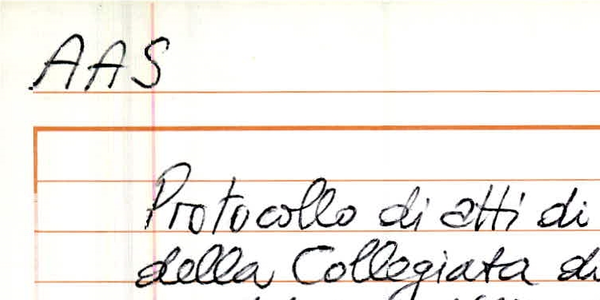 AAS
Protocollo di atti di
della Collegiata di